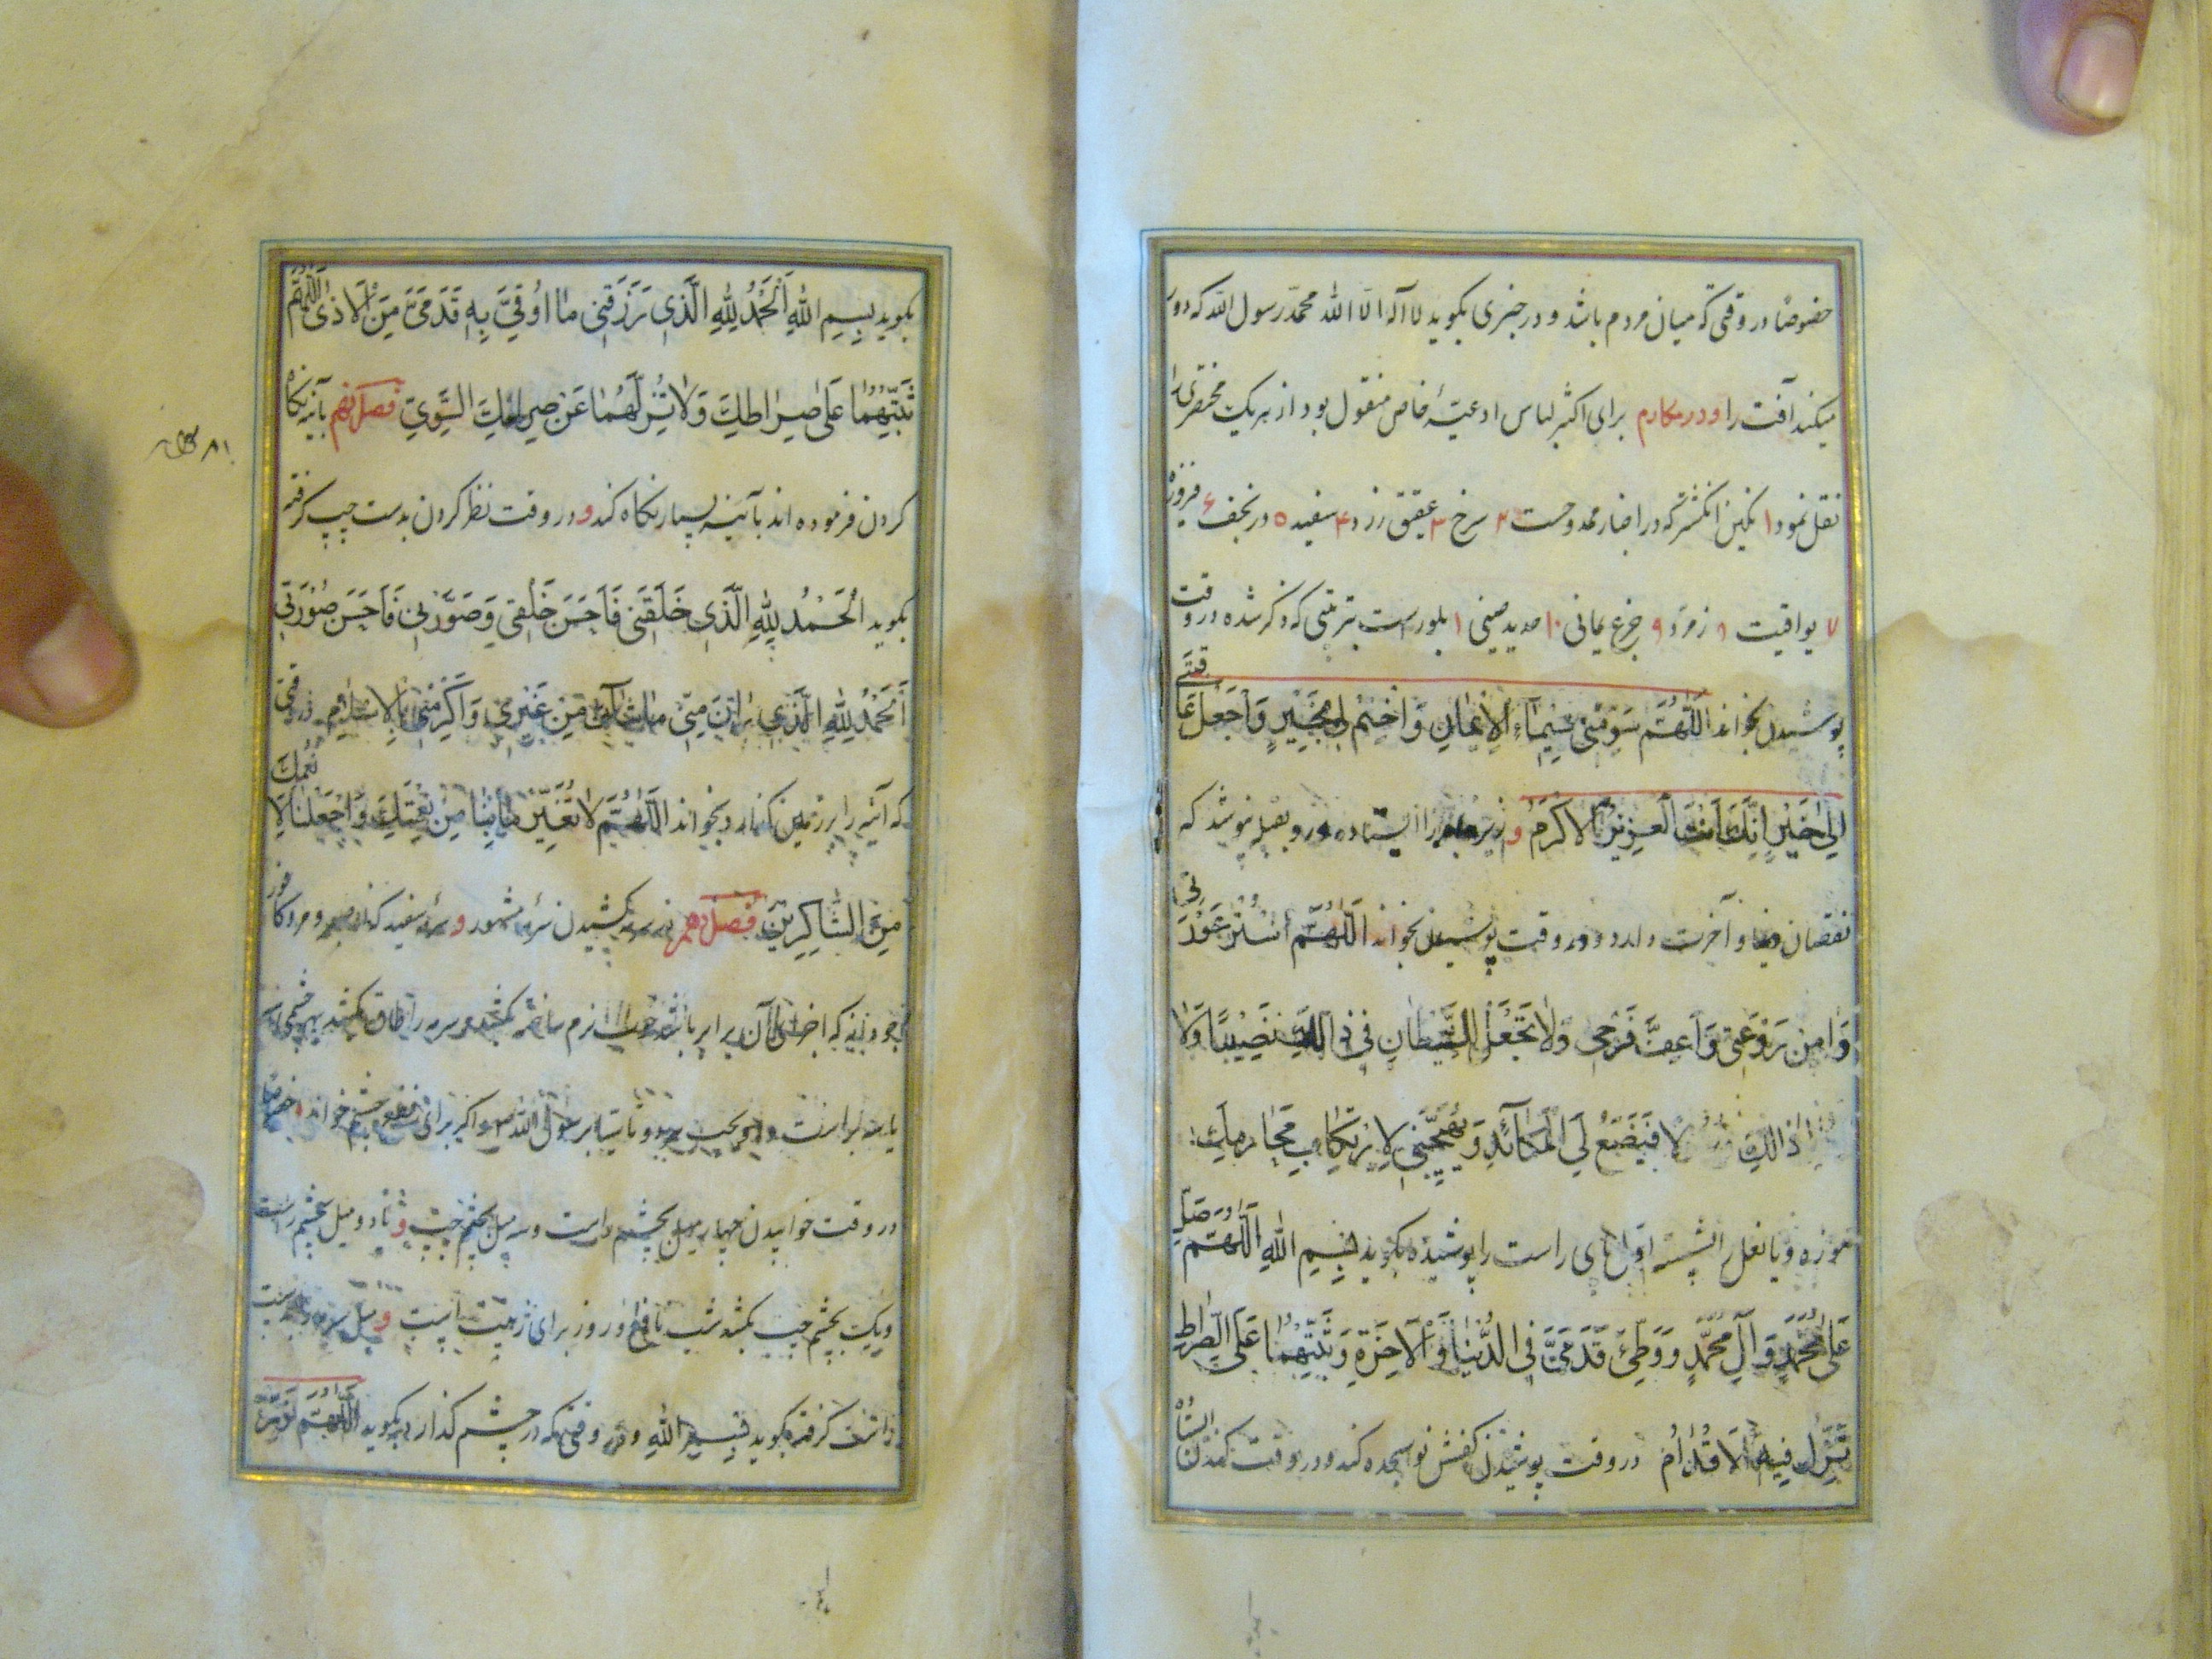 خصوصًا در وقتی که میان مردم باشد و در جنزی بکوید لا اله الا الله محمد رسول الله که دور
میکند آفت را و در مکارم برای اکثر لباس ادعیهٔ خاص منقول بود از هر یک مختصری را
نقل نمود ۱ نکین انکشتر که در اخبار ممدوحست ۲ سرخ ۳ عقیق زرد ۴ سفید ۵ در نجف ۶ فیروزه
۷ یواقیت ۸ زمرد ۹ جزع یمانی ۱۰ حدید صینی ۱ بلور است بترتیبی که ذکر شده در وقت
پوشیدن بخواند اَللّٰهُمَّ سَوِّمْنی بِسیمٰاءِ الْاِیمٰانِ وَاخْتِمْ لی بِخَیْرٍ وَاجْعَلْ عٰاقِبَتی
اِلیٰ خَیْرٍ اِنَّکَ اَنْتَ الْعَزیزُ الْاَکْرَمُ و زیر جامه را ایستاده و رو بقبله نپوشد که
نقصان دنیا و آخرت دارد و در وقت پوشیدن بخواند اَللّٰهُمَّ اسْتُرْ عَوْرَتی
وَاٰمِنْ رَوْعَتی وَاَعِفَّ فَرْجی وَلاٰ تَجْعَلْ لِلشَّیْطٰانِ فی ذٰلِکَ نَصیبًا وَلاٰ
ذٰالِکَ فَیَضَعَ لِیَ الْمَکٰائِدَ وَیُهَیِّجَنی لِارْتِکٰابِ مَحٰارِمِکَ
موزه و یا نعل را نشسته اول پای راست را پوشیده بکوید بِسْمِ اللّٰهِ اَللّٰهُمَّ صَلِّ
عَلیٰ مُحَمَّدٍ وَاٰلِ مُحَمَّدٍ وَوَطِّئْ قَدَمَیَّ فِی الدُّنْیٰا وَالْاٰخِرَةِ وَثَبِّتْهُمٰا عَلَی الصِّرٰاطِ
تَزِلُّ فیهِ الْاَقْدٰامُ در وقت پوشیدن کفش نو سجده کند و در وقت کندن
بکوید بِسْمِ اللّٰهِ اَلْحَمْدُ لِلّٰهِ الَّذی رَزَقَنی مٰا اُوقی بِهِ قَدَمَیَّ مِنَ الْاَذیٰ اَللّٰهُمَّ
ثَبِّتْهُمٰا عَلیٰ صِرٰاطِکَ وَلاٰ تُزِلَّهُمٰا عَنْ صِرٰاطِکَ السَّوِیِّ فصل نهم بآینه نکاه
کردن فرموده اند بآینه بسیار نکاه کند و در وقت نظر کردن بدست چپ کرفته
بکوید اَلْحَمْدُ لِلّٰهِ الَّذی خَلَقَنی فَاَحْسَنَ خَلْقی وَصَوَّرَنی فَاَحْسَنَ صُورَتی
اَلْحَمْدُ لِلّٰهِ الَّذی زٰانَ مِنّی مٰا شٰانَ مِنْ غَیْری وَاَکْرَمَنی بِالْاِسْلاٰمِ در وقتی
که آینه را بر زمین کذارد بخواند اَللّٰهُمَّ لاٰ تُغَیِّرْ مٰا بِنٰا مِنْ نِعْمَتِکَ وَاجْعَلْنٰا لِاَنْعُمِکَ
مِنَ الشّٰاکِرینَ فصل دهم در سرمه کشیدن سرمه مشهور و سرمه سفید که از صبر و مر و کافور
که اجزای آن برابر باشد نرم ساخته بکشد و سرمه را طاق بکشد بهر چشمی
برای ضعف چشم خواند
در وقت خوابیدن چهار میل بچشم راست و سه میل بچشم چپ و یا دو میل بچشم راست
و یک بچشم چپ بکشد شب نافع و روز برای زینت است و میل سرمه را بدست
راست کرفته بکوید بِسْمِ اللّٰهِ و در وقتی که در چشم کذارد بکوید اَللّٰهُمَّ نَوِّرْ